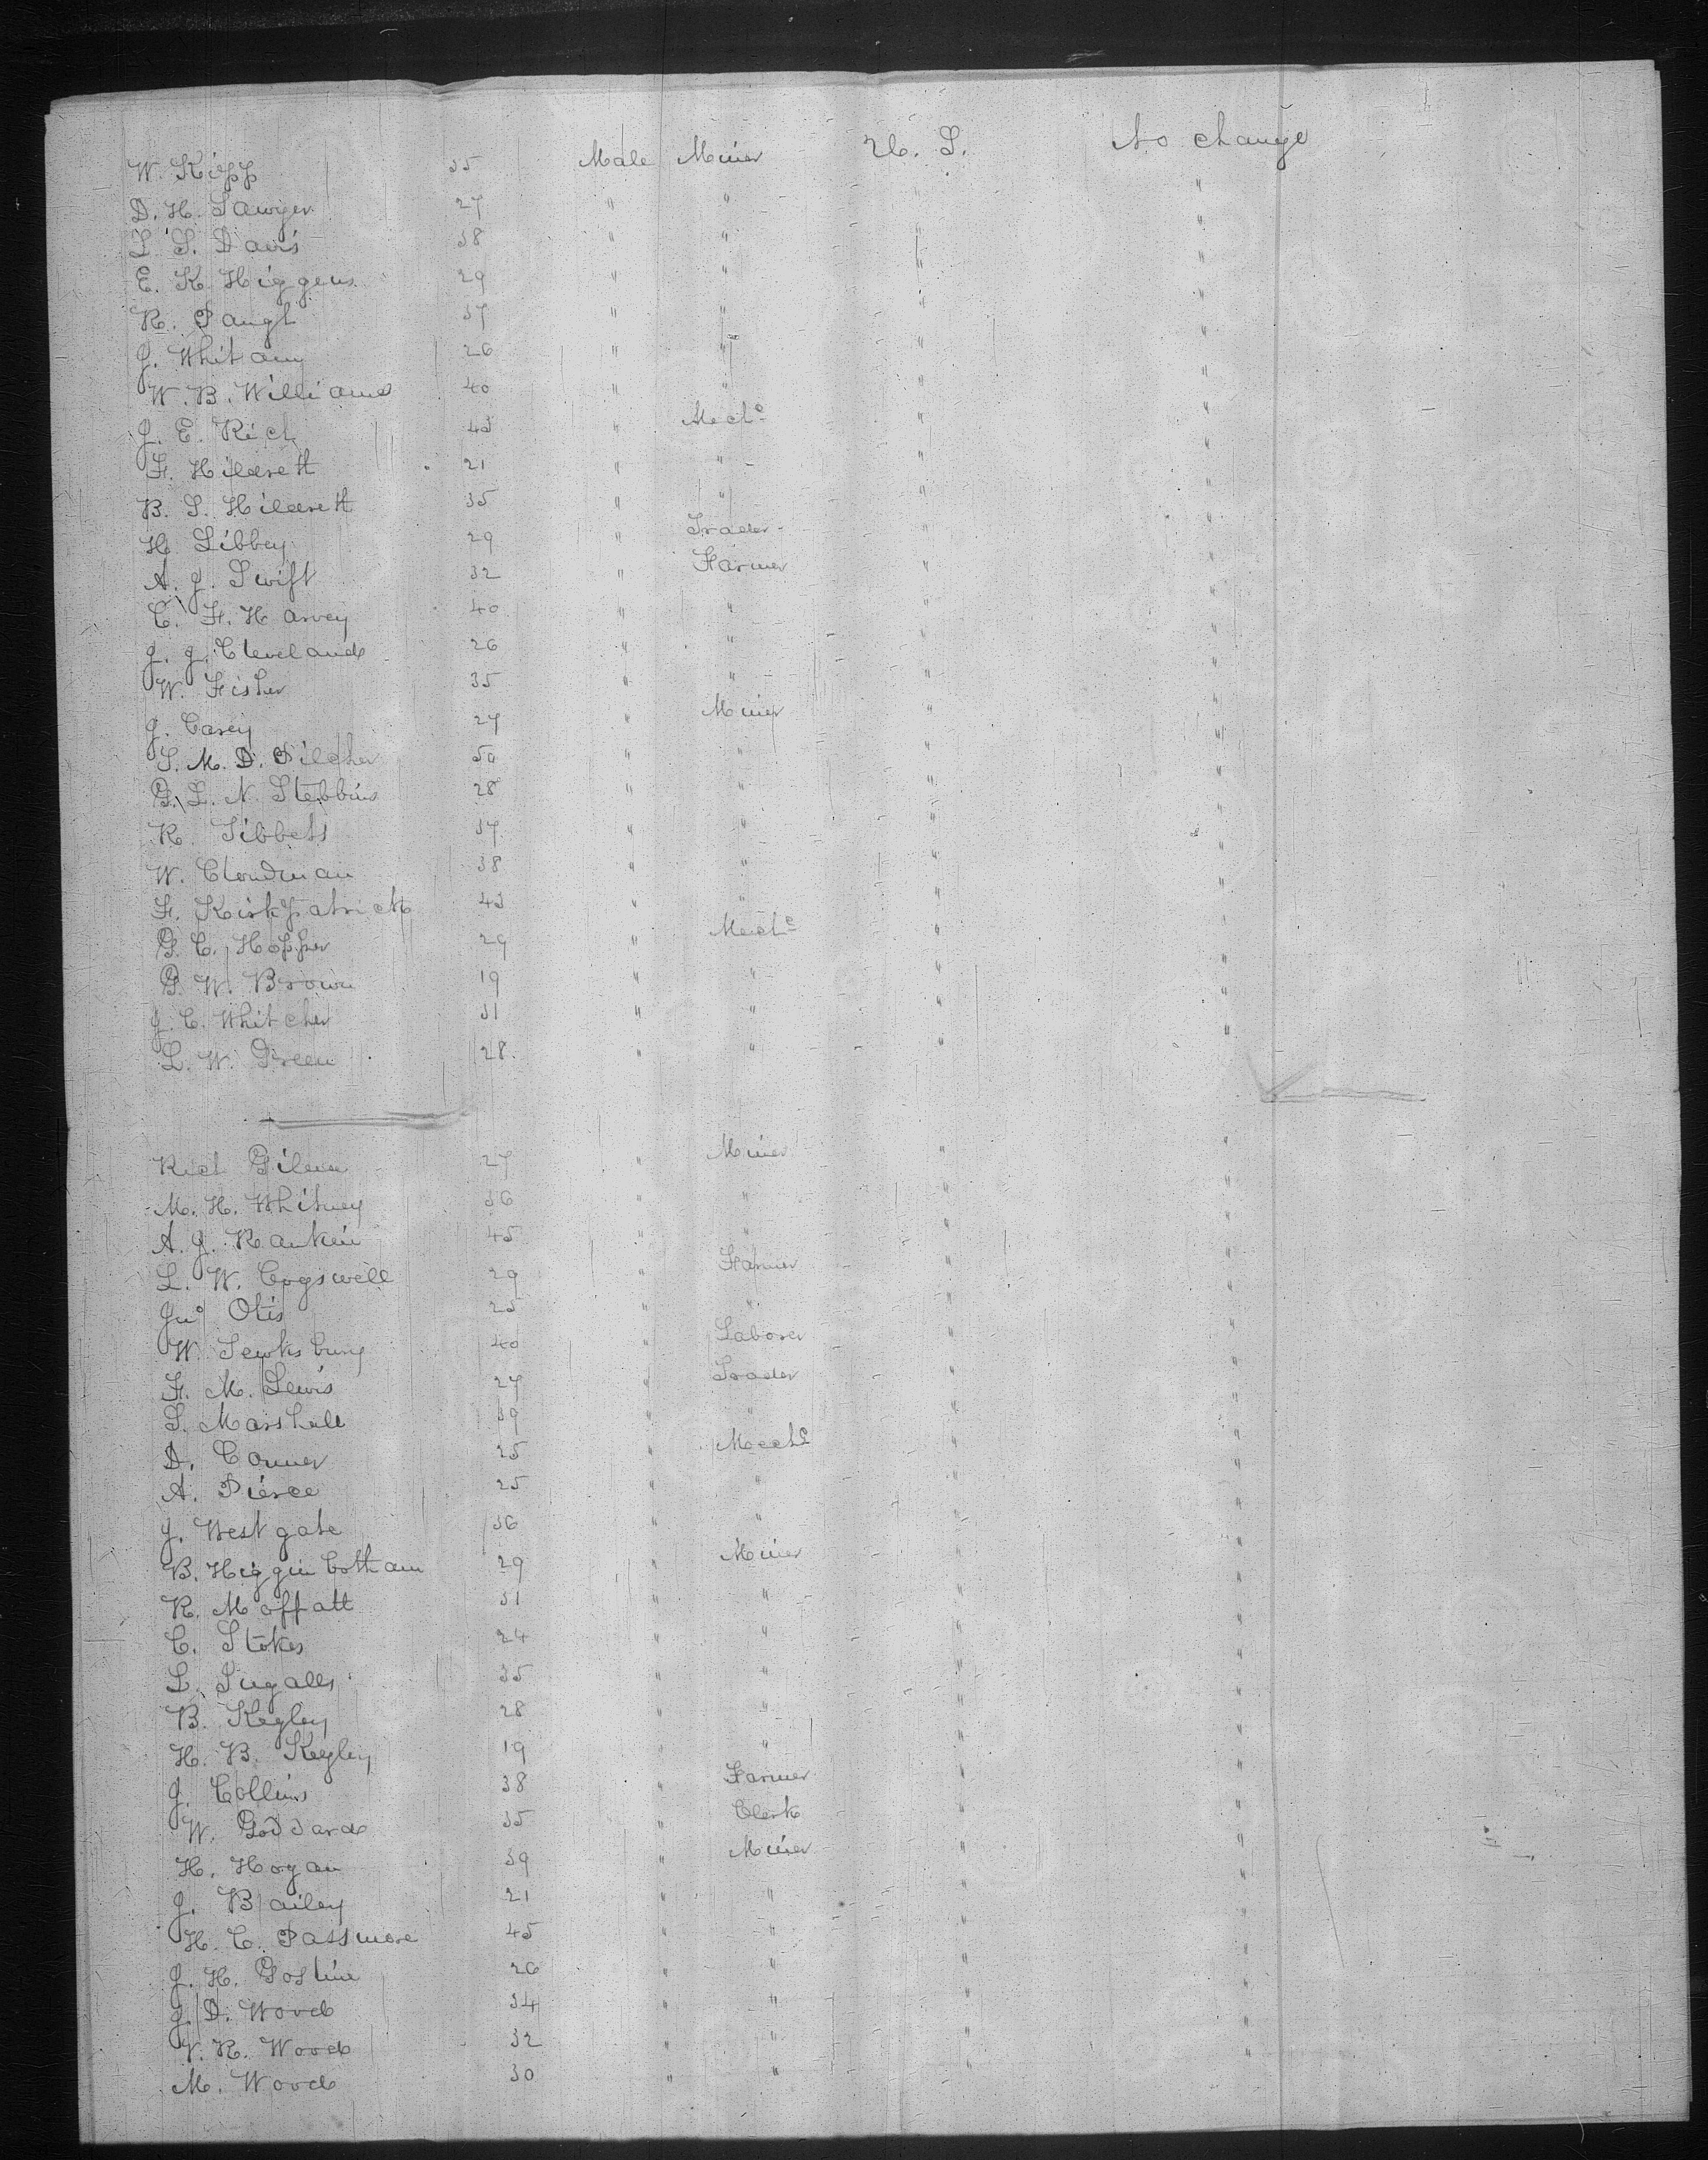 W. Kipp 35 Male Miner U. S. No change
D. H. Sawyer 27 " " " "
L. S. Davis 38 " " " "
E. K. Higgens 29 " " " "
R. Paugh 37 " " " "
J. Whitamy 26 " " " "
W. B. Williams 40 " " " "
J. E. Rich 43 " Mechc " "
F. Hildrett 21 " " " "
B. S. Hildrett 35 " " " "
H. Libbey 29 " Trader " "
A. J. Swift 32 " Farmer " "
C. F. Harvey 40 " " " "
J. J. Cleveland 26 " " " "
W. Fisher 35 " " " "
J. Casey 27 " Miner " "
S. M. D. Pilcher 50 " " " "
G. L. N. Stebbins 28 " " " "
R. Tibbets 37 " " " "
W. Cloudman 38 " " " "
F. Kirkpatrick 43 " " " "
G. C. Hopper 29 " Mechc " "
G. W. Brown 19 " " " "
J. C. Whitcher 31 " " " "
L. W. Green 28 " " " "
Rich Gilern 27 " Miner " "
M. H. Whitney 36 " " " "
A. J. Rankin 45 " " " "
L. W. Cogswell 29 " Farmer " "
Jno Otis 25 " " " "
W. Tewksbury 40 " Laborer " "
F. M. Lewis 27 " Trader " "
S. Marshall 39 " " " "
D. Conner 25 " Mechc " "
A. Pierce 25 " " " "
J. Westgate 36 " " " "
B. Higginbotham 29 " Miner " "
R. Moffatt 31 " " " "
C. Stokes 24 " " " "
L. Ingalls 35 " " " "
B. Kegley 28 " " " "
H. B. Kegley 19 " " " "
J. Collins 38 " Farmer " "
W. Goddard 35 " Clerk " "
H. Hogan 39 " Miner " "
J. Bailey 21 " " " "
H. C. Passmore 45 " " " "
J. H. Gostine 26 " " " "
J. D. Wood 34 " " " "
V. R. Wood 32 " " " "
M. Wood 30 " " " "